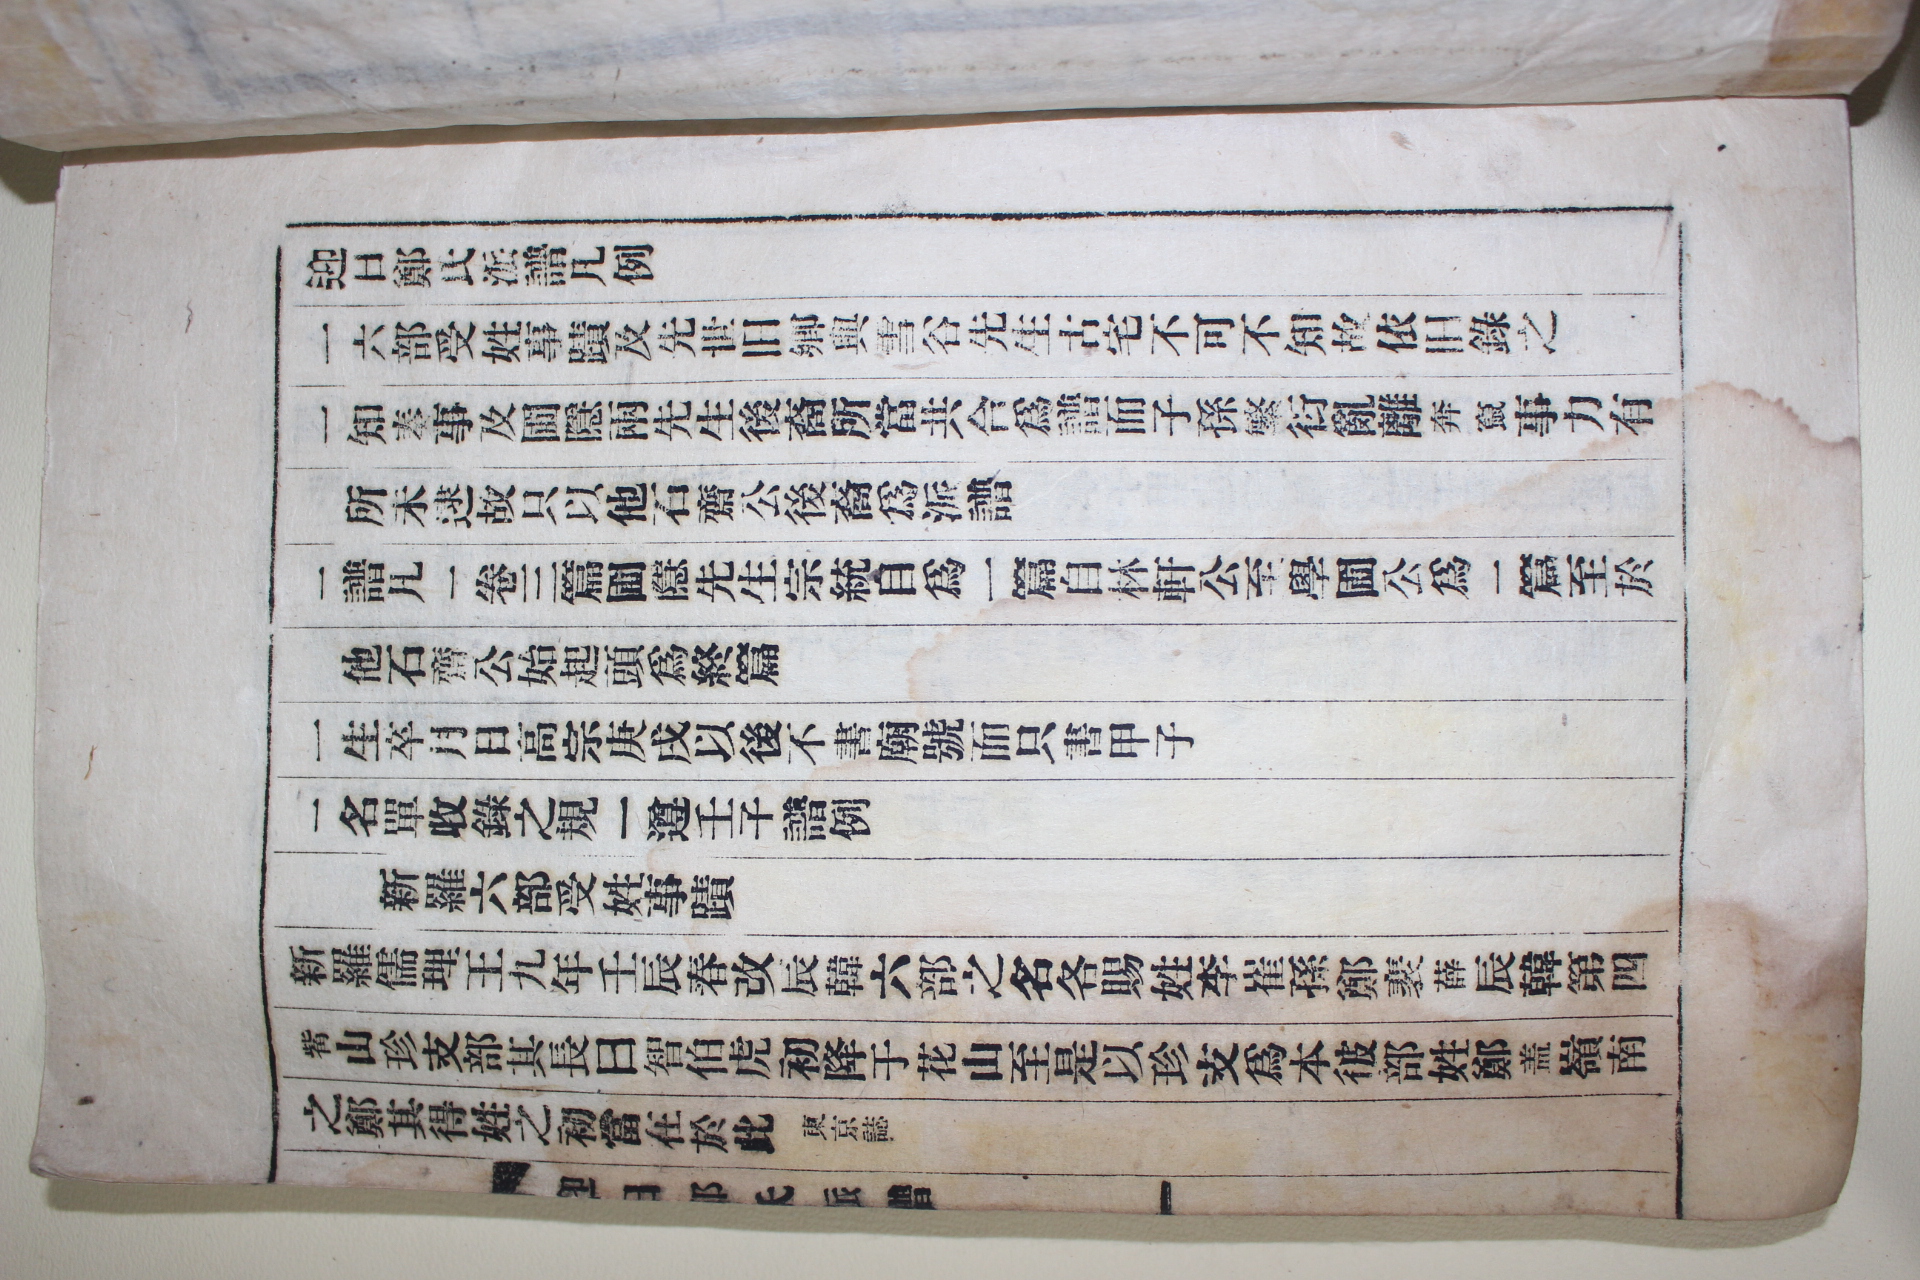 迎日鄭氏派譜凡例
一六部受姓事蹟及先世旧鄕與雪谷先生古宅不可不知故依旧錄之
一知奏事及圃隱兩先生後裔所當共合爲譜而子孫繁衍亂離奔竄事力有
所未逮故只以他石齋公後裔爲派譜
一譜凡一卷三篇圃隱先生宗統目爲一篇自林軒公至學圃公爲一篇至於
他石齋公始起頭爲終篇
一生卒月日高宗庚戌以後不書廟號而只書甲子
一名單收錄之規一遵壬子譜例
新羅六部受姓事蹟
新羅儒理王九年壬辰春改辰韓六部之名各賜姓李崔孫鄭裵薛辰韓第四
觜山珍支部其長曰智伯虎初降于花山至是以珍支爲本彼部姓鄭盖嶺南
之鄭其得姓之初當在於此 東京誌
迎日鄭氏派譜 一